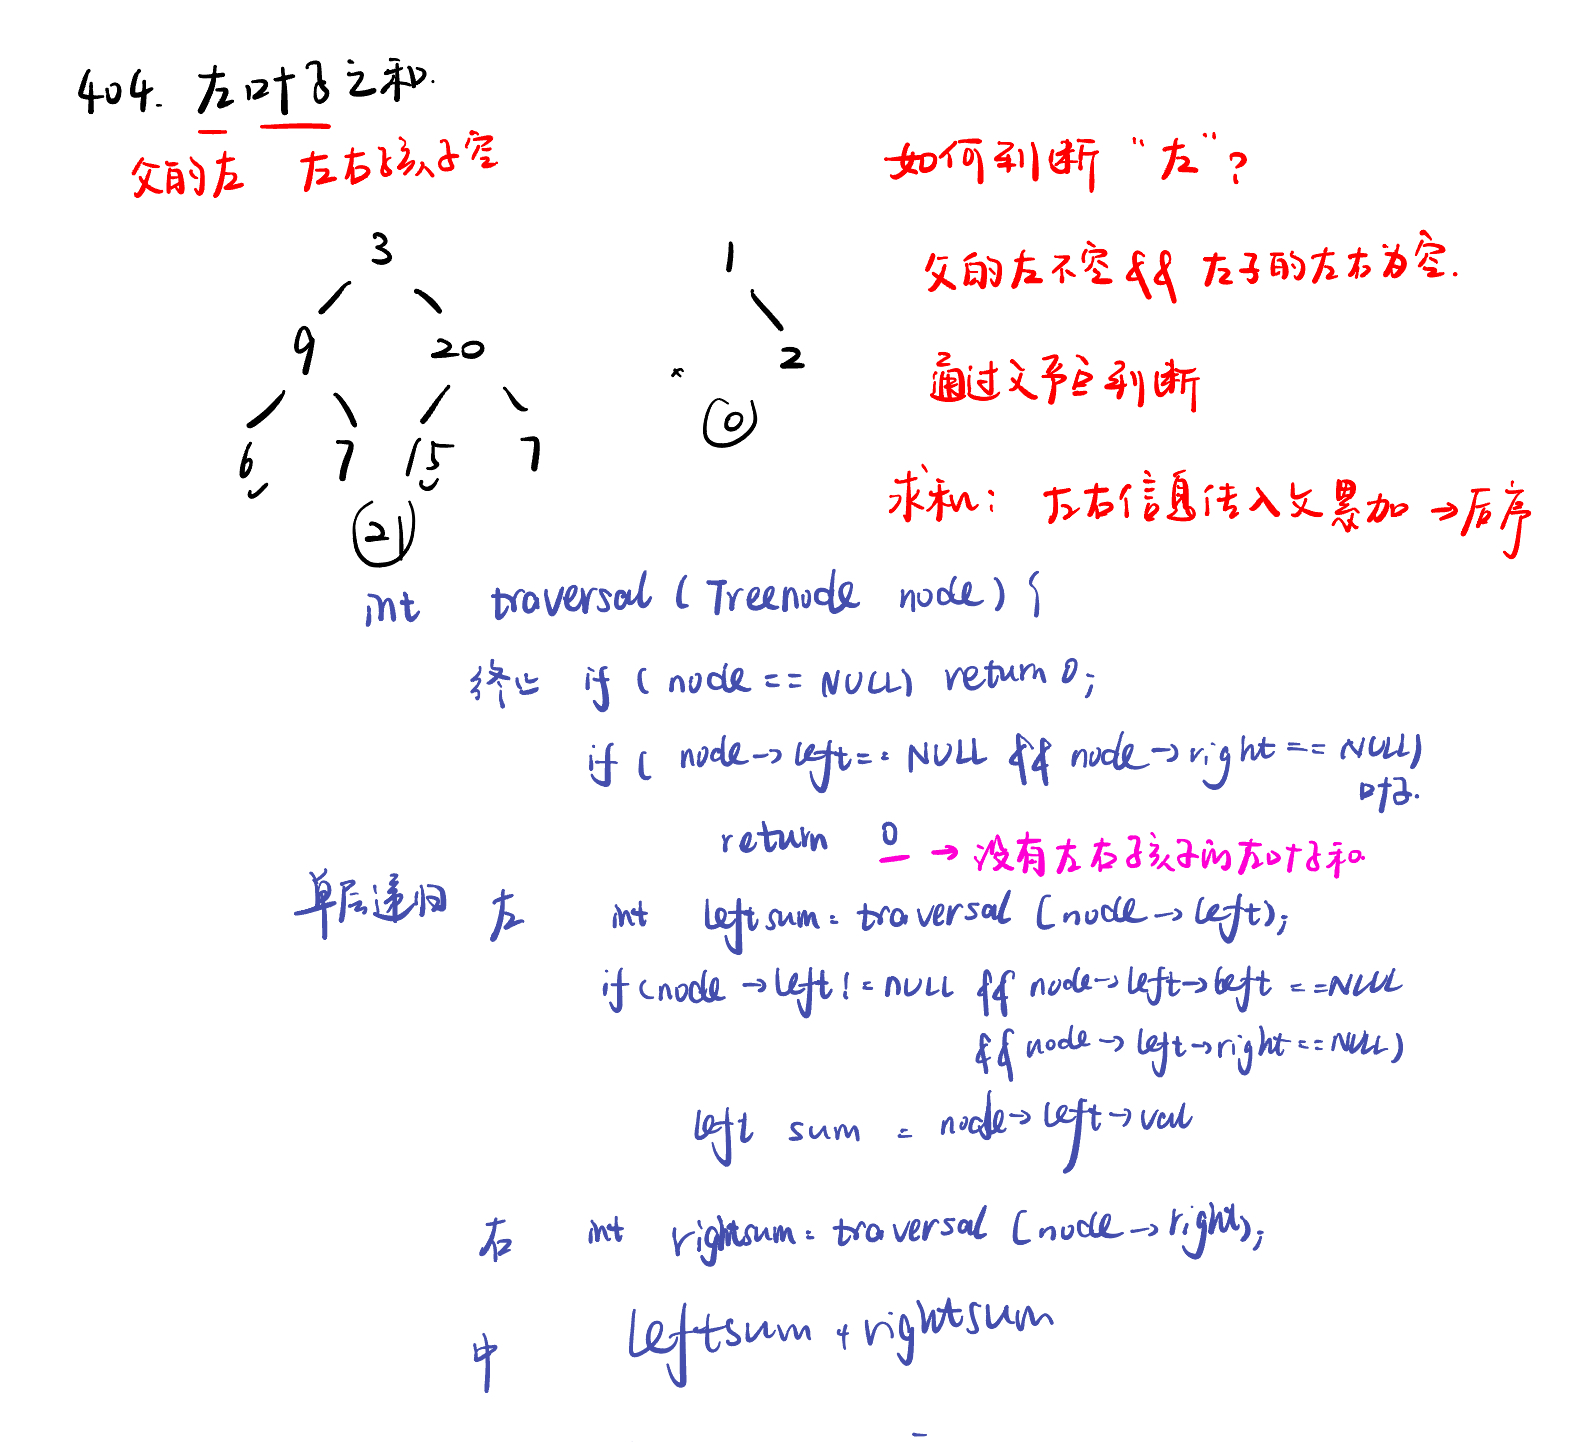 404. 左叶子之和.
父的左 左右孩子空
如何判断 "左"?
3
1
父的左不空 && 左子的左右为空.
9 20
2
通过父节点判断
0
6 7 15 7
求和: 左右信息传入父累加 →后序
21
int traversal ( Treenode node) {
终止 if ( node == NULL) return 0;
if ( node→left== NULL && node→right == NULL)
叶子.
return 0 → 没有左右孩子的左叶子和
单层递归 左 int leftsum= traversal (node→left);
if (node →left != NULL && node→left→left ==NULL
&& node→left→right==NULL)
left sum = node→left→val
右 int rightsum= traversal (node→right);
中 leftsum + rightsum